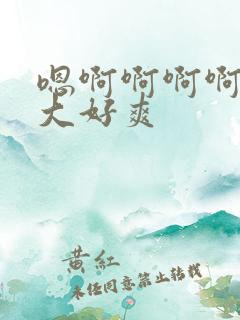 嗯啊啊啊啊
大好爽
黄红
未经同意禁止转载